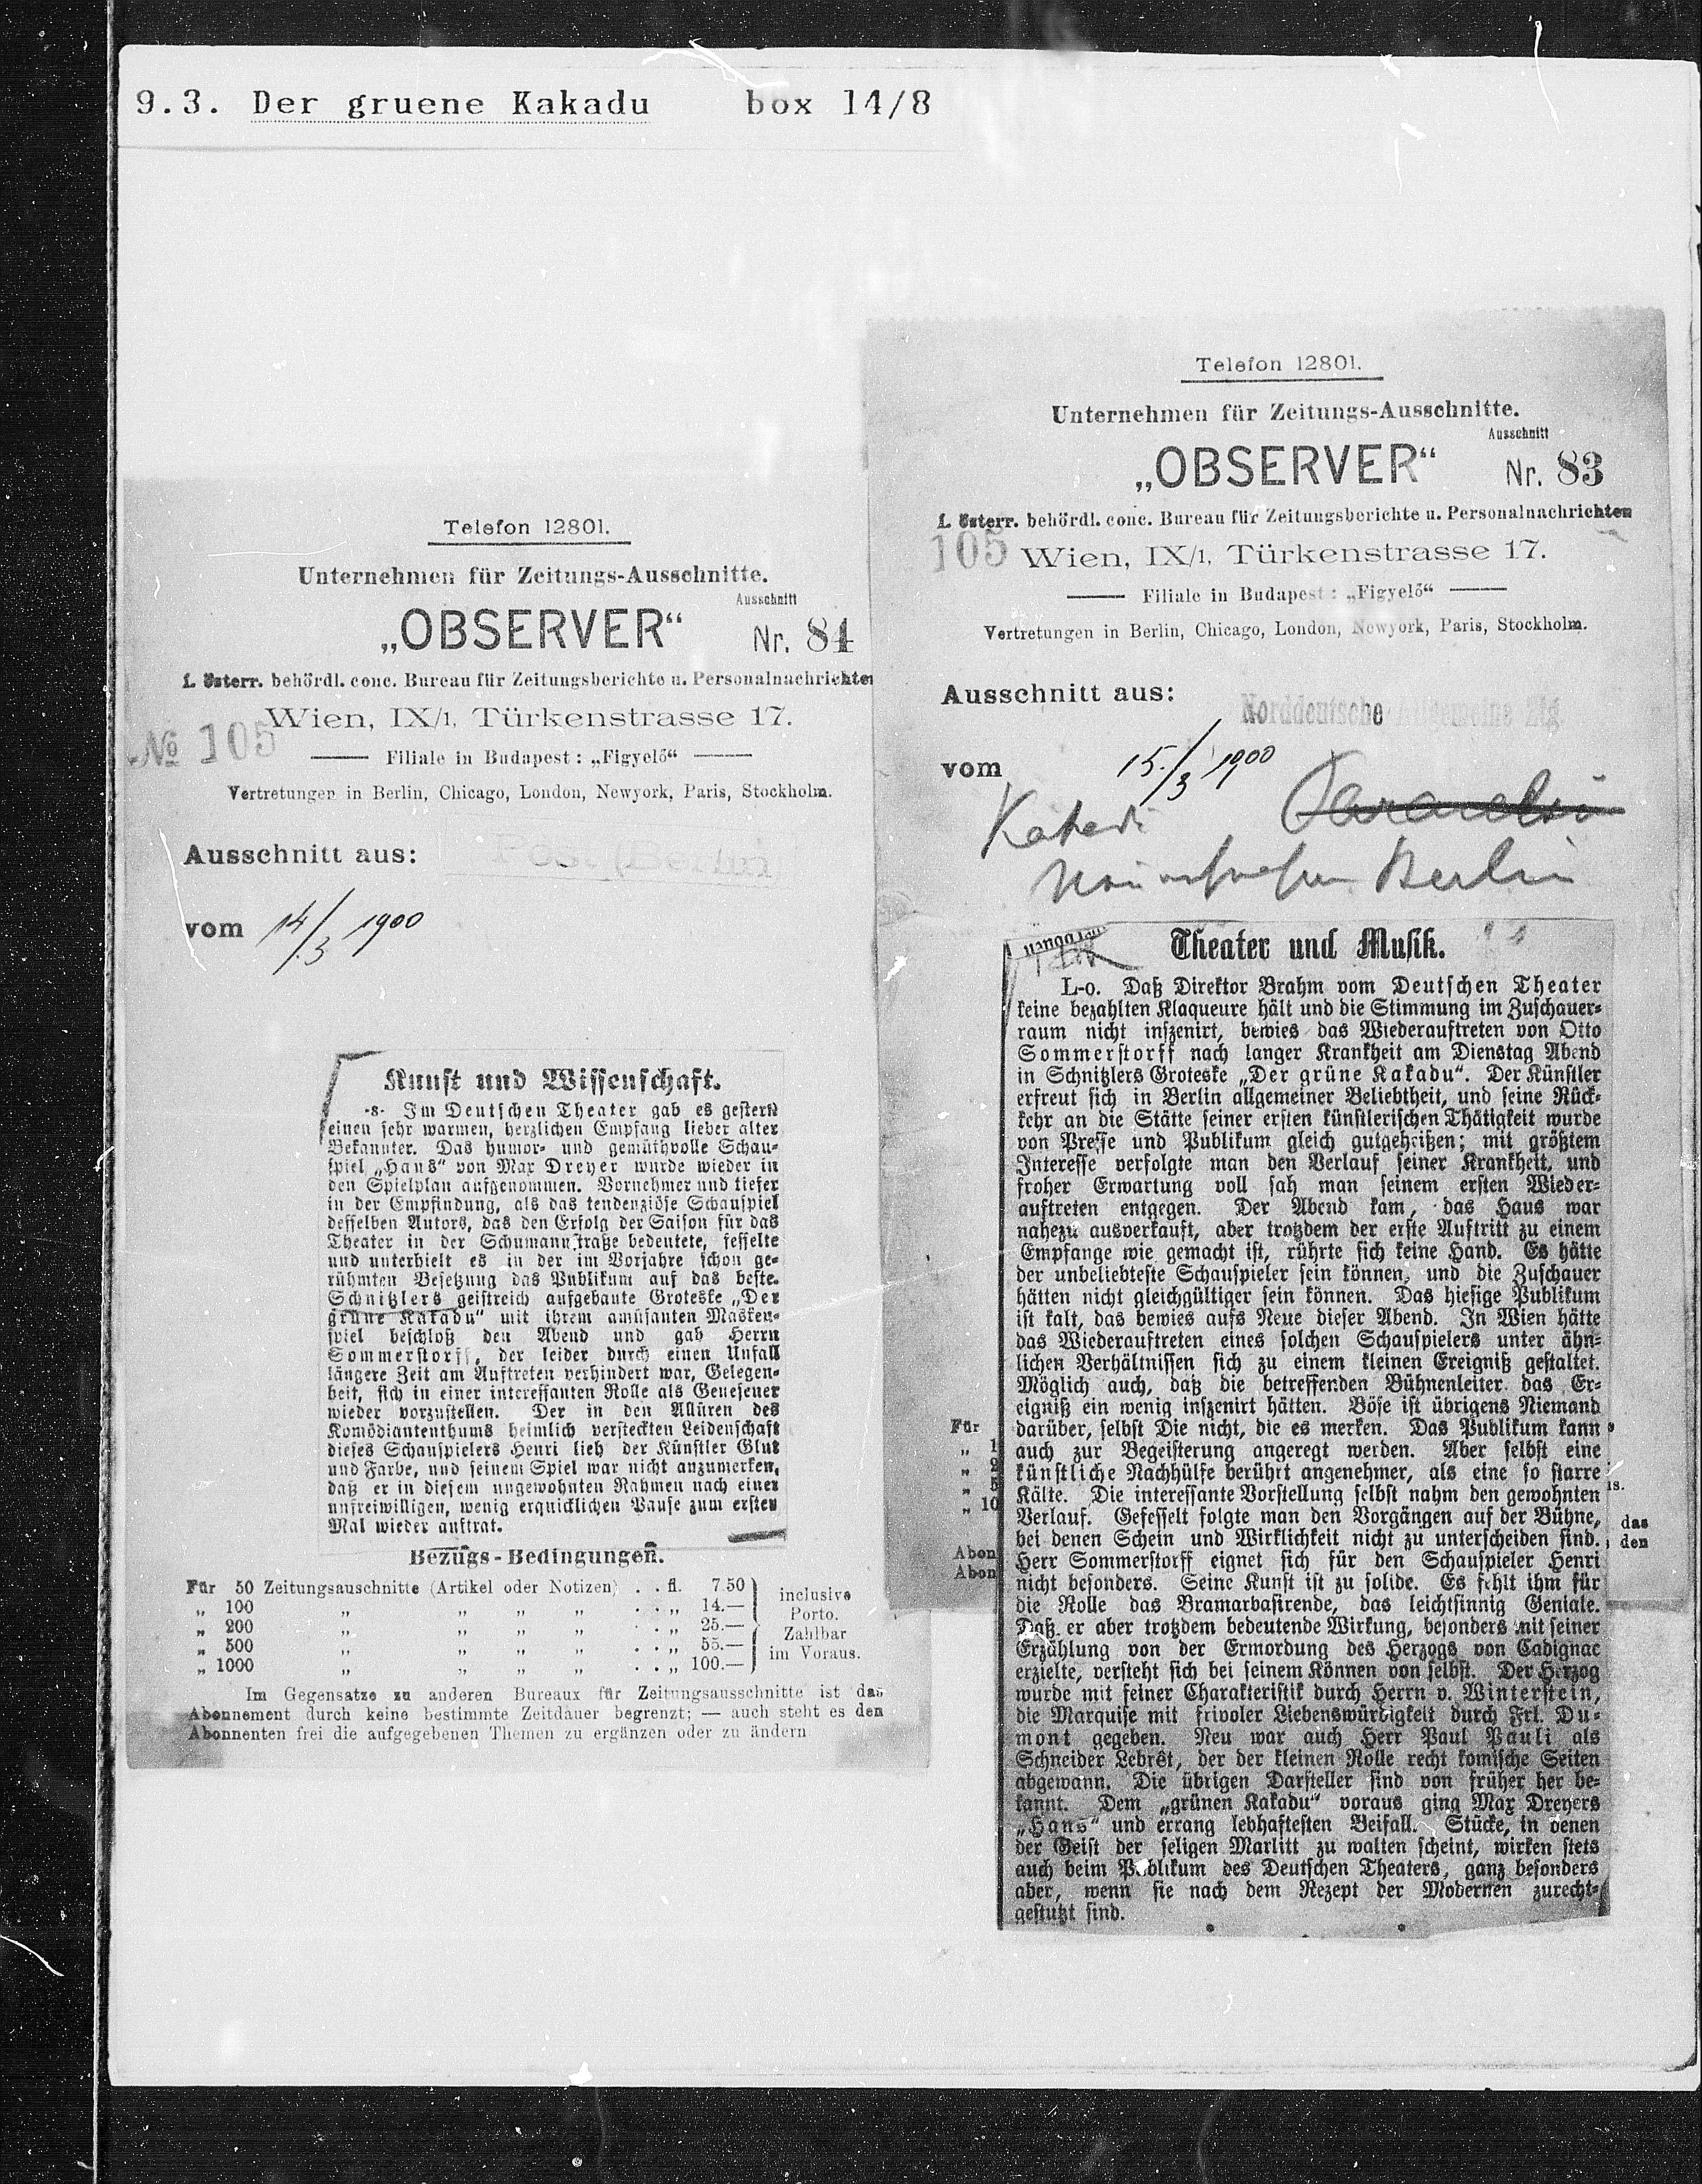 9.3. Der gruene Kakadu box 14/8
Telefon 12801.
Unternehmen für Zeitungs-Ausschnitte.
Ausschnitt
„OBSERVER“ Nr. 84
I. österr. behördl. conc. Bureau für Zeitungsberichte u. Personalnachrichten
Wien, IX/1, Türkenstrasse 17.
№ 105
Filiale in Budapest: „Figyelő“
Vertretungen in Berlin, Chicago, London, Newyork, Paris, Stockholm.
Ausschnitt aus: Post (Berlin)
vom 14/3 1900
Kunst und Wissenschaft.
-s- Im Deutschen Theater gab es gestern
einen sehr warmen, herzlichen Empfang lieber alter
Bekannter. Das humor- und gemüthvolle Schau-
spiel „Hans“ von Max Dreyer wurde wieder in
den Spielplan aufgenommen. Vornehmer und tiefer
in der Empfindung, als das tendenziöse Schauspiel
desselben Autors, das den Erfolg der Saison für das
Theater in der Schumannstraße bedeutete, fesselte
und unterhielt es in der im Vorjahre schon ge-
rühmten Besetzung das Publikum auf das beste.
Schnitzlers geistreich aufgebaute Groteske „Der
grüne Kakadu“ mit ihrem amüsanten Masken-
spiel beschloß den Abend und gab Herrn
Sommerstorff, der leider durch einen Unfall
längere Zeit am Auftreten verhindert war, Gelegen-
heit, sich in einer interessanten Rolle als Genesener
wieder vorzustellen. Der in den Allüren des
Komödiantenthums heimlich versteckten Leidenschaft
dieses Schauspielers Henri lieh der Künstler Glut
und Farbe, und seinem Spiel war nicht anzumerken,
daß er in diesem ungewohnten Rahmen nach einer
unfreiwilligen, wenig erquicklichen Pause zum ersten
Mal wieder auftrat.
Bezugs-Bedingungen.
Für 50 Zeitungsauschnitte (Artikel oder Notizen) . . fl. 7.50
„ 100 „ „ „ „ . . „ 14.—
„ 200 „ „ „ „ . . „ 25.—
„ 500 „ „ „ „ . . „ 55.—
„ 1000 „ „ „ „ . . „ 100.—
inclusive
Porto.
Zahlbar
im Voraus.
Im Gegensatze zu anderen Bureaux für Zeitungsausschnitte ist das
Abonnement durch keine bestimmte Zeitdauer begrenzt; — auch steht es den
Abonnenten frei die aufgegebenen Themen zu ergänzen oder zu ändern
Telefon 12801.
Unternehmen für Zeitungs-Ausschnitte.
Ausschnitt
„OBSERVER“ Nr. 83
I. österr. behördl. conc. Bureau für Zeitungsberichte u. Personalnachrichten
105 Wien, IX/1, Türkenstrasse 17.
Filiale in Budapest: „Figyelő“
Vertretungen in Berlin, Chicago, London, Newyork, Paris, Stockholm.
Ausschnitt aus: Norddeutsche Allgemeine Ztg.
vom 15./3 1900
Berlin
Theater und Musik.
L-o. Daß Direktor Brahm vom Deutschen Theater
keine bezahlten Klaqueure hält und die Stimmung im Zuschauer-
raum nicht inszenirt, bewies das Wiederauftreten von Otto
Sommerstorff nach langer Krankheit am Dienstag Abend
in Schnitzlers Groteske „Der grüne Kakadu“. Der Künstler
erfreut sich in Berlin allgemeiner Beliebtheit, und seine Rück-
kehr an die Stätte seiner ersten künstlerischen Thätigkeit wurde
von Presse und Publikum gleich gutgeheißen; mit größtem
Interesse verfolgte man den Verlauf seiner Krankheit, und
froher Erwartung voll sah man seinem ersten Wieder-
auftreten entgegen. Der Abend kam, das Haus war
nahezu ausverkauft, aber trotzdem der erste Auftritt zu einem
Empfange wie gemacht ist, rührte sich keine Hand. Es hätte
der unbeliebteste Schauspieler sein können, und die Zuschauer
hätten nicht gleichgültiger sein können. Das hiesige Publikum
ist kalt, das bewies aufs Neue dieser Abend. In Wien hätte
das Wiederauftreten eines solchen Schauspielers unter ähn-
lichen Verhältnissen sich zu einem kleinen Ereigniß gestaltet.
Möglich auch, daß die betreffenden Bühnenleiter das Er-
eigniß ein wenig inszenirt hätten. Böse ist übrigens Niemand
darüber, selbst Die nicht, die es merken. Das Publikum kann
auch zur Begeisterung angeregt werden. Aber selbst eine
künstliche Nachhülfe berührt angenehmer, als eine so starre
Kälte. Die interessante Vorstellung selbst nahm den gewohnten
Verlauf. Gefesselt folgte man den Vorgängen auf der Bühne,
bei denen Schein und Wirklichkeit nicht zu unterscheiden sind.
Herr Sommerstorff eignet sich für den Schauspieler Henri
nicht besonders. Seine Kunst ist zu solide. Es fehlt ihm für
die Rolle das Bramarbasirende, das leichtsinnig Geniale.
Daß er aber trotzdem bedeutende Wirkung, besonders mit seiner
Erzählung von der Ermordung des Herzogs von Cadignac
erzielte, versteht sich bei seinem Können von selbst. Der Herzog
wurde mit feiner Charakteristik durch Herrn v. Winterstein,
die Marquise mit frivoler Liebenswürdigkeit durch Frl. Du-
mont gegeben. Neu war auch Herr Paul Pauli als
Schneider Lebrêt, der der kleinen Rolle recht komische Seiten
abgewann. Die übrigen Darsteller sind von früher her be-
kannt. Dem „grünen Kakadu“ voraus ging Max Dreyers
„Hans“ und errang lebhaftesten Beifall. Stücke, in denen
der Geist der seligen Marlitt zu walten scheint, wirken stets
auch beim Publikum des Deutschen Theaters, ganz besonders
aber, wenn sie nach dem Rezept der Modernen zurecht-
gestutzt sind.
Für
„ 1
„ 2
„ 5
„ 10
Abon
Abon
is.
das
den